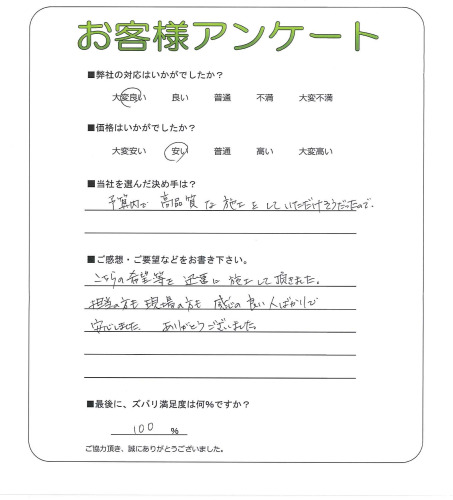 お客様アンケート
■弊社の対応はいかがでしたか？
大変良い 良い 普通 不満 大変不満
■価格はいかがでしたか？
大変安い 安い 普通 高い 大変高い
■当社を選んだ決め手は？
予算内で 高品質な施工をしていただけそうだったので.
■ご感想・ご要望などをお書き下さい。
こちらの希望等を迅速に施工して頂きました。
担当の方も現場の方も感じの良い人ばかりで
安心しました. ありがとうございました。
■最後に、ズバリ満足度は何％ですか？
100 ％
ご協力頂き、誠にありがとうございました。